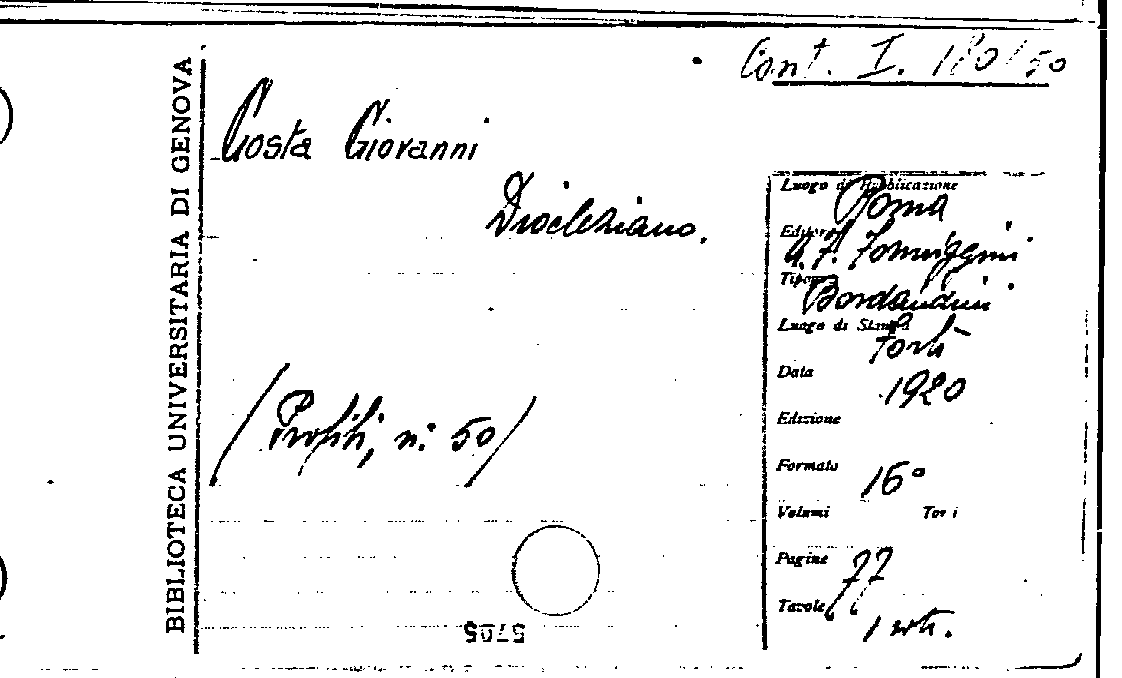 Cont. I. 180/50
BIBLIOTECA UNIVERSITARIA DI GENOVA
Costa Giovanni
Diocleziano.
/Profili, n. 50/
Luogo di Pubblicazione
Roma
Editore
A. F. Formiggini
Tipogr
Bordandini
Luogo di Stampa
Forlì
Data
1920
Edizione
Formato
16°
Volumi Tomi
Pagine
77
Tavole
1
5705